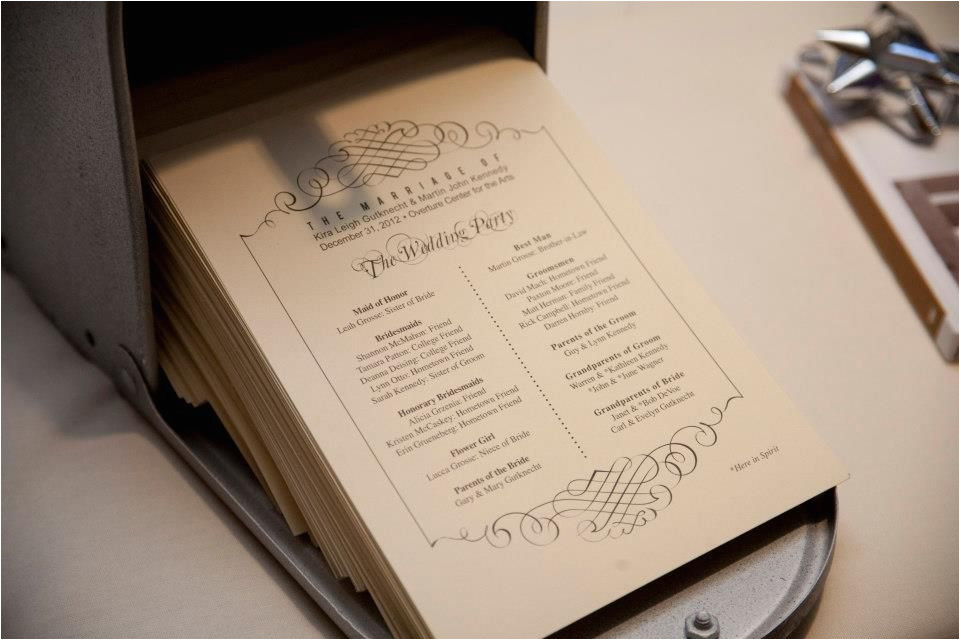 THE MARRIAGE OF
Kira Leigh Gutknecht & Martin John Kennedy
December 31, 2012 • Overture Center for the Arts
The Wedding Party
Maid of Honor
Leah Grosse: Sister of Bride
Bridesmaids
Shannon McMahon: Friend
Tamara Patton: College Friend
Deanna Deising: College Friend
Lynn Otto: Hometown Friend
Sarah Kennedy: Sister of Groom
Honorary Bridesmaids
Alicia Grzenia: Friend
Kristen McCaskey: Hometown Friend
Erin Grueneberg: Hometown Friend
Flower Girl
Lucca Grosse: Niece of Bride
Parents of the Bride
Gary & Mary Gutknecht
Best Man
Martin Grosse: Brother-in-Law
Groomsmen
David Mack: Hometown Friend
Paxton Moore: Friend
Matt Herman: Family Friend
Rick Campbell: Hometown Friend
Darren Hornby: Friend
Parents of the Groom
Guy & Lynn Kennedy
Grandparents of Groom
Warren & *Kathleen Kennedy
*John & *June Wagner
Grandparents of Bride
Janet & *Bob DeVoe
Carl & Evelyn Gutknecht
*Here in Spirit